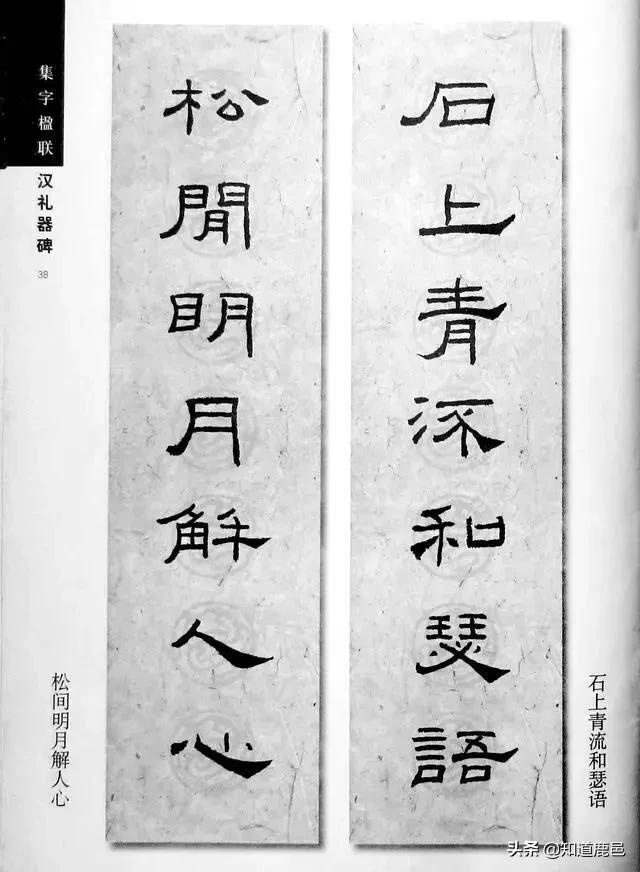 石上青流和瑟語
松間明月解人心
石上青流和瑟语
松间明月解人心
集字楹联
汉礼器碑
38
头条 @知道鹿邑